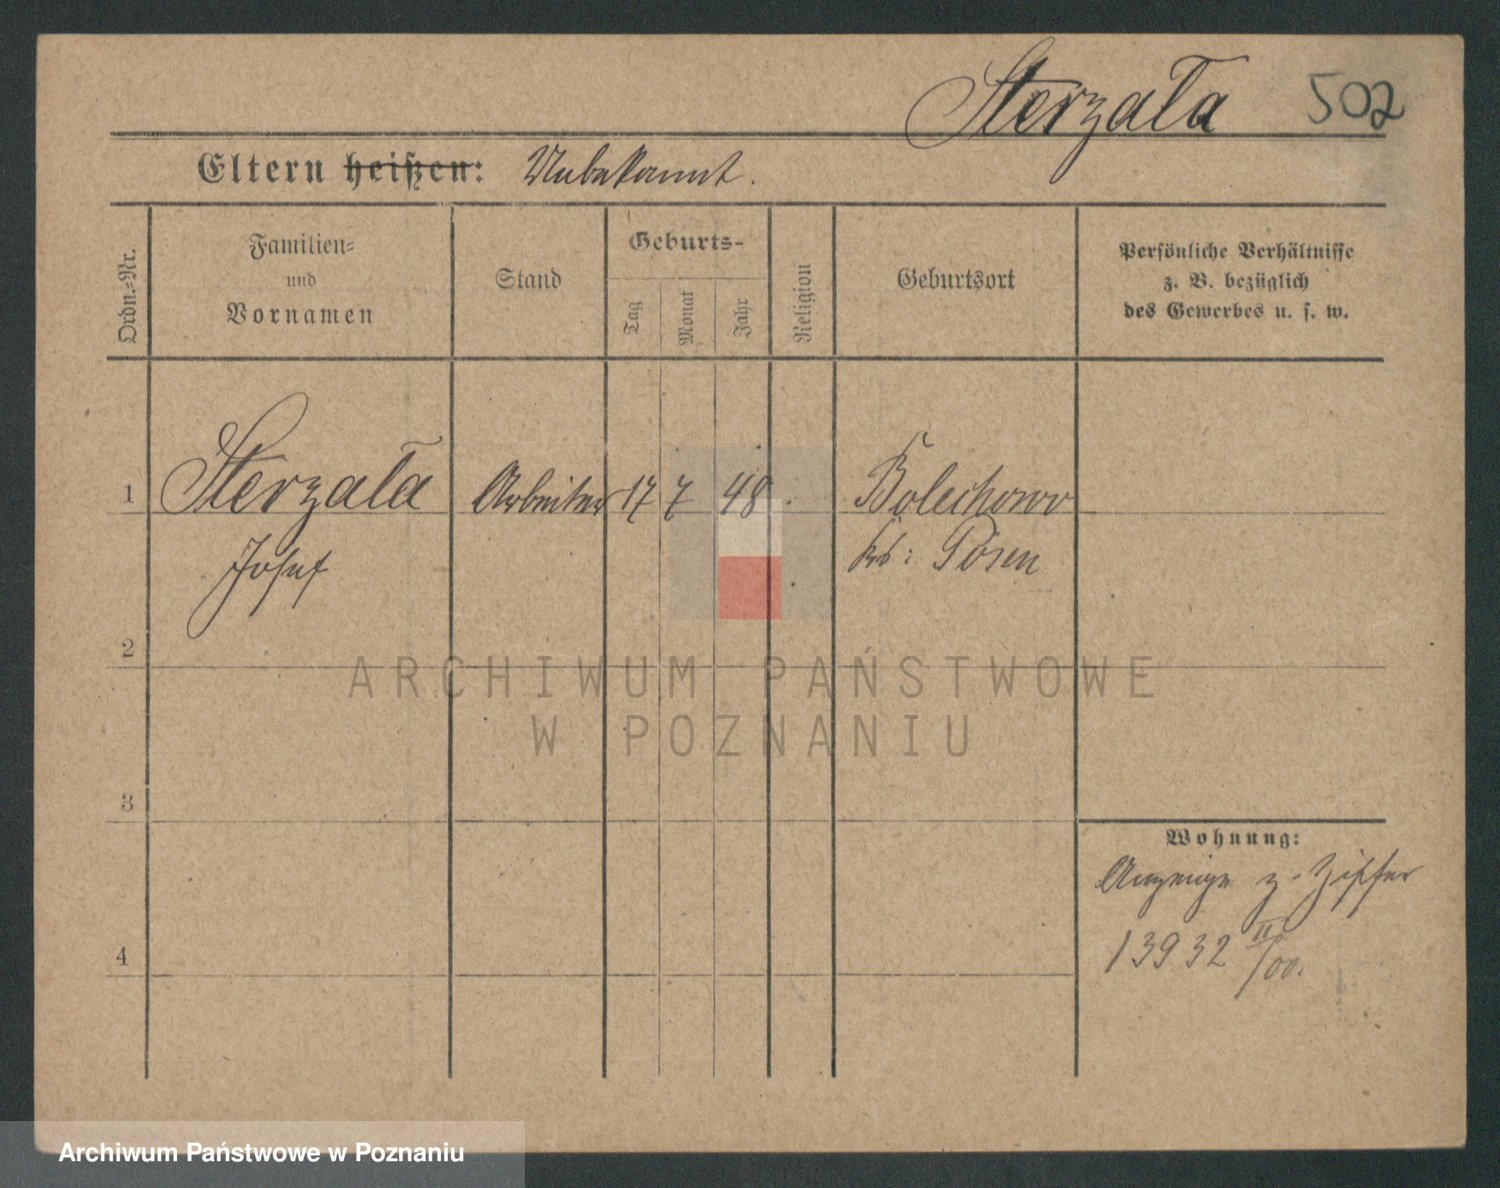 Sterzała 502
Eltern heißen: Unbekannt.
Ordn.-Nr.
Familien-
und
Vornamen
Stand
Geburts-
Tag
Monat
Jahr
Religion
Geburtsort
Persönliche Verhältnisse
z. B. bezüglich
des Gewerbes u. s. w.
1 Sterzała Arbeiter 17 7 48 Bolechowo
Josef Krs: Posen
2
ARCHIWUM PAŃSTWOWE
W POZNANIU
3
Wohnung:
Anzeige z. Ziffer
4
13932 II/00.
Archiwum Państwowe w Poznaniu